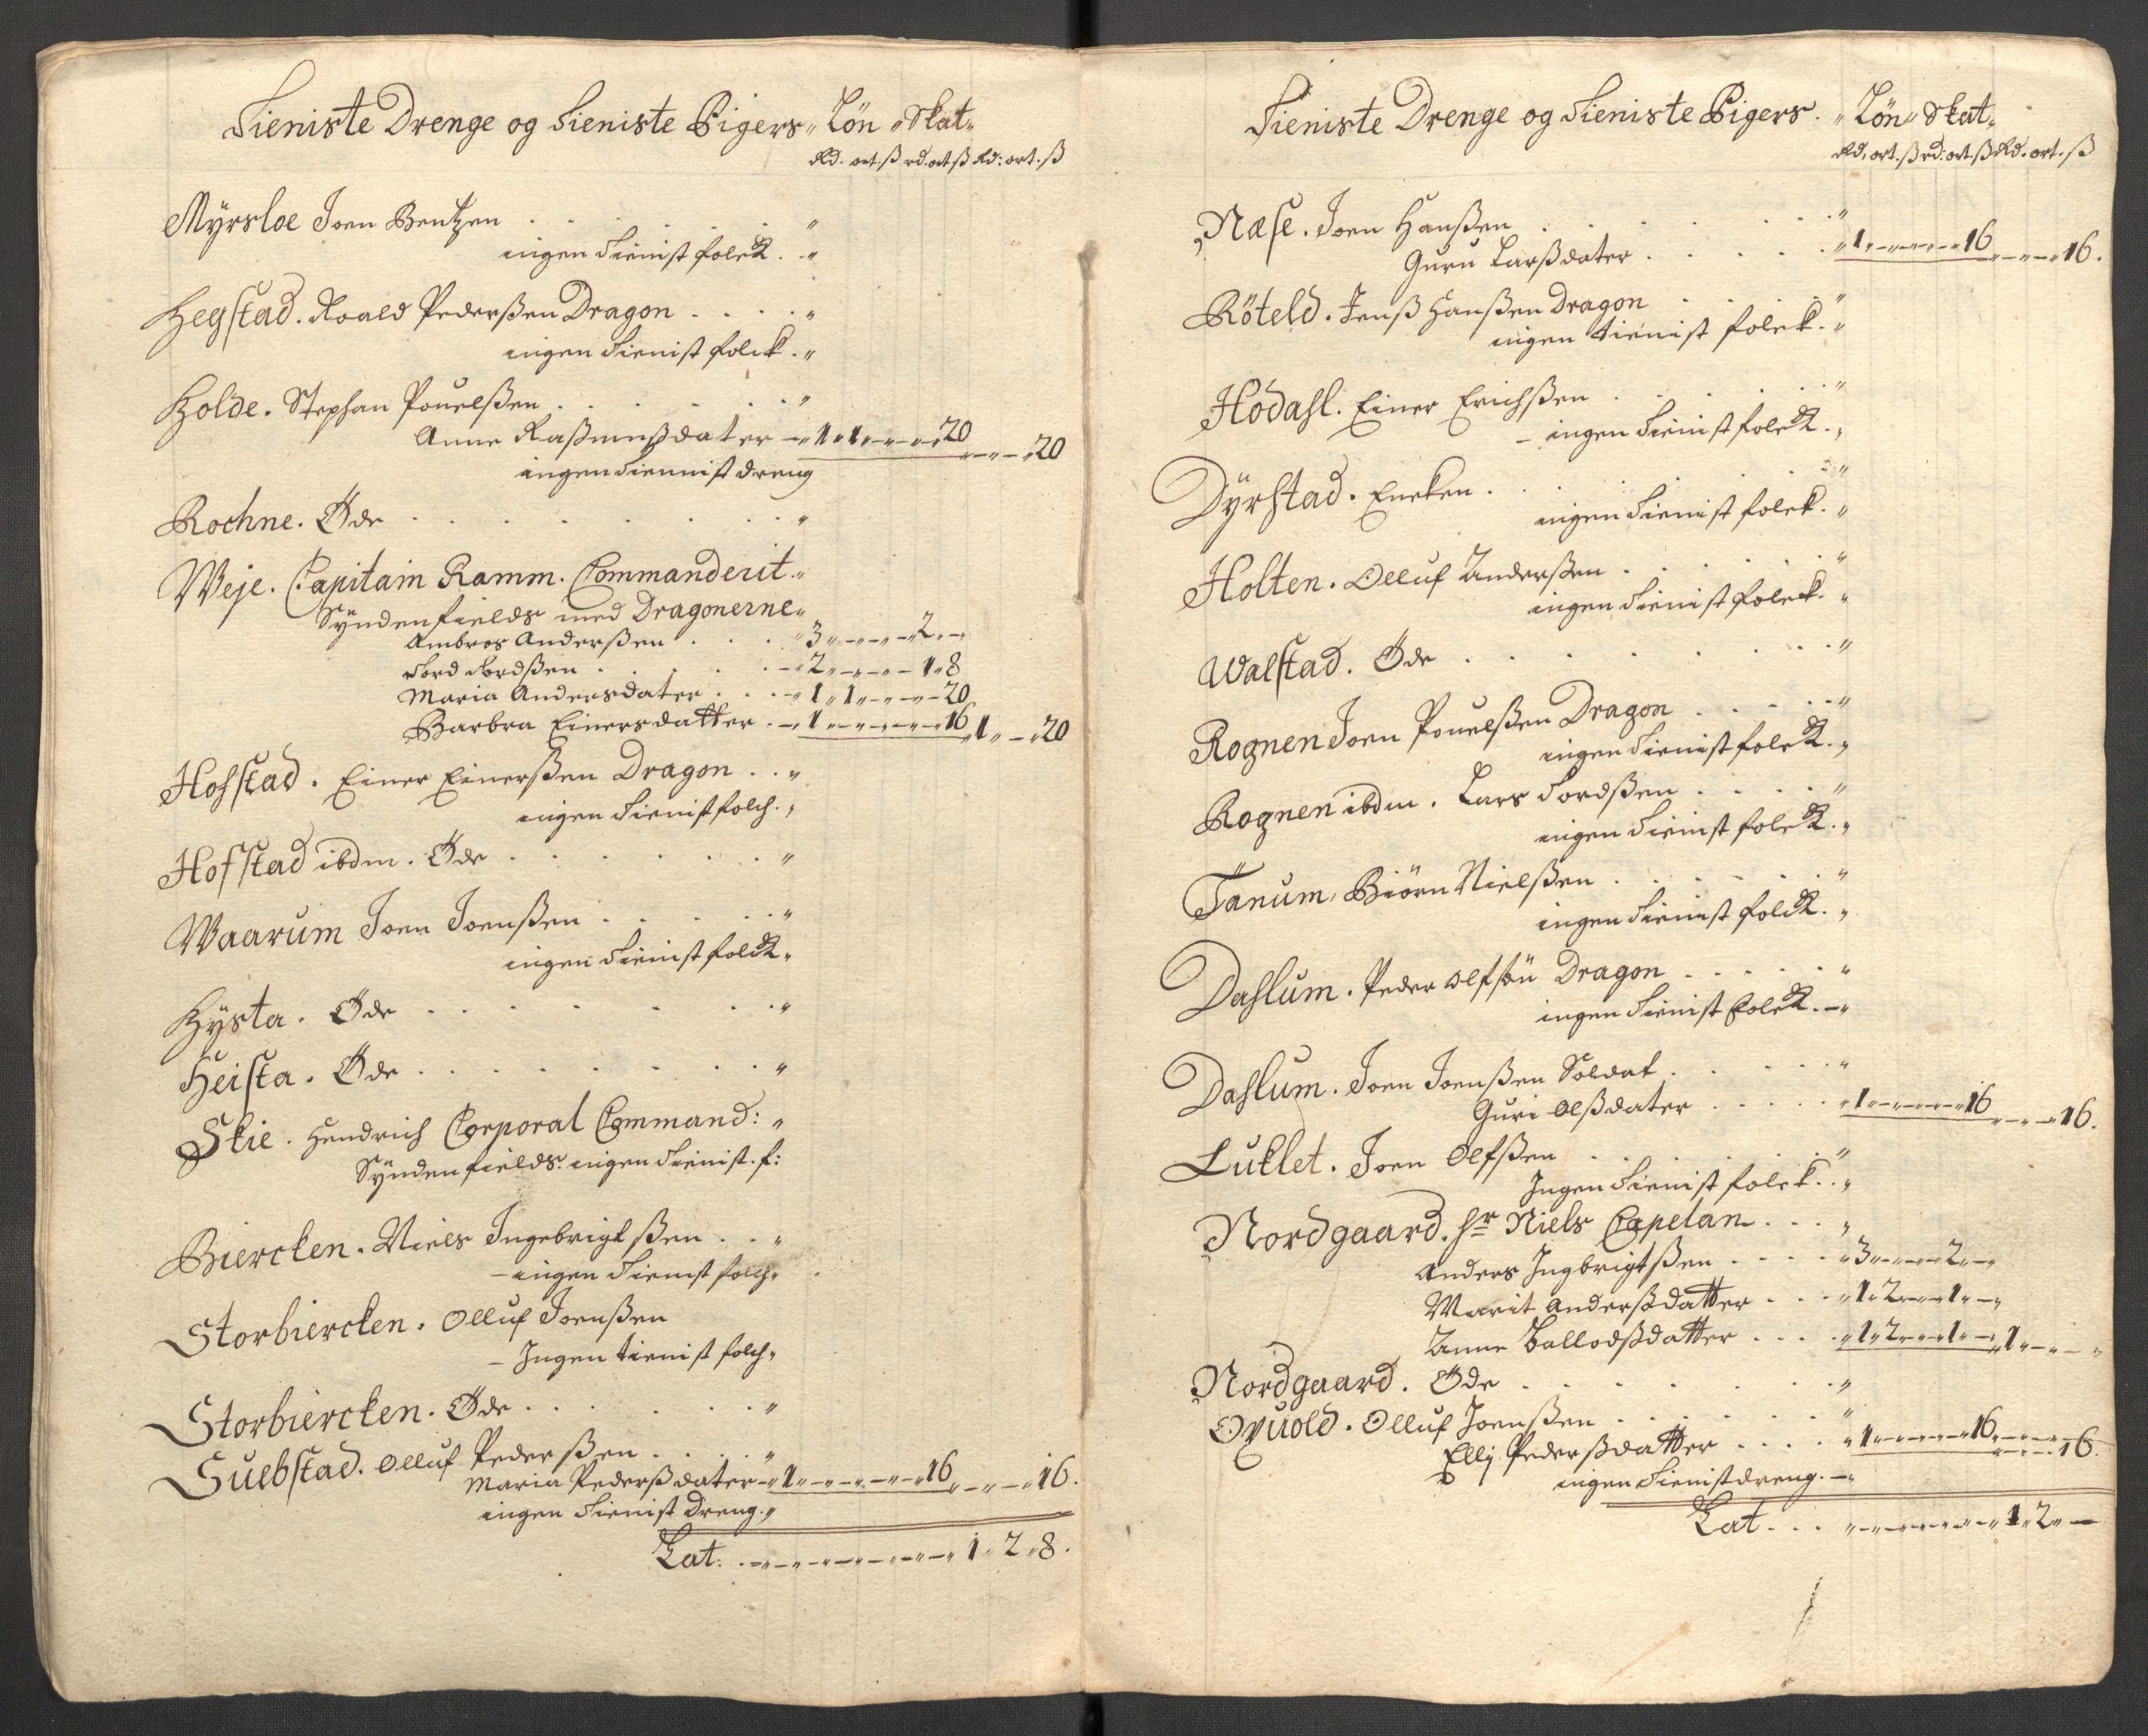 Tieniste Drenge og Tieniste Pigers „ Lön „ Skat „
Rd. ort. ß rd. ort ß Rd: ort. ß
Myrsloe Joen Bentzen . . . . . „
ingen Tienist folck . „
Hegstad. Roald Pederßen Dragon . . . . „
ingen Tienist folck . „
Holde. Stephan Pouelßen . . . . . „
Anne Raßmußdater — „ 1 „ 1 „ — „ — „ 20 „ — „ — „ 20
ingen Tiennist dreng
Rochne. Öde . . . . . . . „
Weje. Capitain Ramm. Commanderit . „
Syndenfields med Dragonerne „
Ambros Anderßen . . . „ 3 „ — „ — „ — „ 2 „ — „
Tord Tordßen . . . . . — „ 2 „ — „ — „ — 1 „ 8
Maria Andersdater . . . — „ 1 „ 1 „ — „ — „ — 20
Barbra Einersdatter . — „ 1 „ — „ — „ — „ — „ 16 „ 1 „ — „ 20
Hofstad. Einer Einerßen Dragon . . „
ingen Tienist folch . „
Hofstad ibdm. Öde . . . . . . . „
Waarum Joen Joenßen . . . . . „
ingen Tienist folck „
Hysta. Öde . . . . . . . „
Heista. Öde . . . . . . . . „
Skie. Hendrich Corporal Command: „
Syndenfields. ingen Tienist. f:
Biercken. Niels Ingebrigtßen . . „
— ingen Tienist folch „
Storbiercken. Olluf Joenßen
— Ingen tienist folch „
Storbiercken. Öde . . . . . . „
Suebstad. Olluf Pederßen . . . . „
Maria Pederßdater — „ 1 „ — „ — „ — „ — „ 16 „ — „ — „ 16.
ingen Tienist Dreng . „
Lat: . — „ — „ — „ — „ — „ — „ — „ 1 „ 2 „ 8.
Tieniste Drenge og Tieniste Pigers . „ Lön „ Skat „
Rd, ort. ß rd: ort. ß Rd. ort. ß
Næse. Joen Hanßen . . . . . . „
Guru Larßdater . . . . . „ 1 „ — „ — „ — „ 16 „ — „ — „ 16.
Röteld. Jenß Hanßen Dragon . . . . „
ingen tienist folck . „
Hodahl. Einer Erichßen . . . . . „
— ingen Tienist folck . „
Dyrstad. Encken . . . . . . . „
ingen Tienist folck . „
Holten. Olluf Anderßen . . . . . „
ingen Tienist folck . „
Walstad. Öde . . . . . . . . „
Rognen Joen Pouelßen Dragon . . . . . „
ingen Tienist folck . „
Rognen ibdm. Lars Tordßen . . . . . „
ingen Tienist folck . „
Tanum, Biörn Nielßen . . . . . . „
ingen Tienist folck . „
Dahlum. Peder Olfsøn Dragon . . . . . „
ingen Tienist folck . — „
Dahlum. Joen Joenßen Soldat . . . . . „
Guri Olßdater . . . . . „ 1 „ — „ — „ — „ 16 „ — „ — „ 16.
Luklet. Joen Olfßen . . . . . . „
Ingen Tienist folck . „
Nordgaard. Hr Niels Capelan . . . „
Anders Ingbrigtßen . . . . „ 3 „ — „ — „ 2 „ — „
Marit Anderßdatter . . . „ 1 „ 2 „ — „ 1 „ — „
Anne Ballodßdatter . . . . „ 1 „ 2 „ — „ 1 „ — „ 1 „ — „ — „
Nordgaard. Öde . . . . . . . . „
Ovuold. Olluf Joenßen . . . . . . „
Ellj Pederßdatter . . . . „ 1 „ — „ — „ — „ 16 „ — „ — „ 16.
ingen Tienist dreng . — „
Lat . . . „ — „ — „ — „ — „ — „ 1 „ 2 „ —